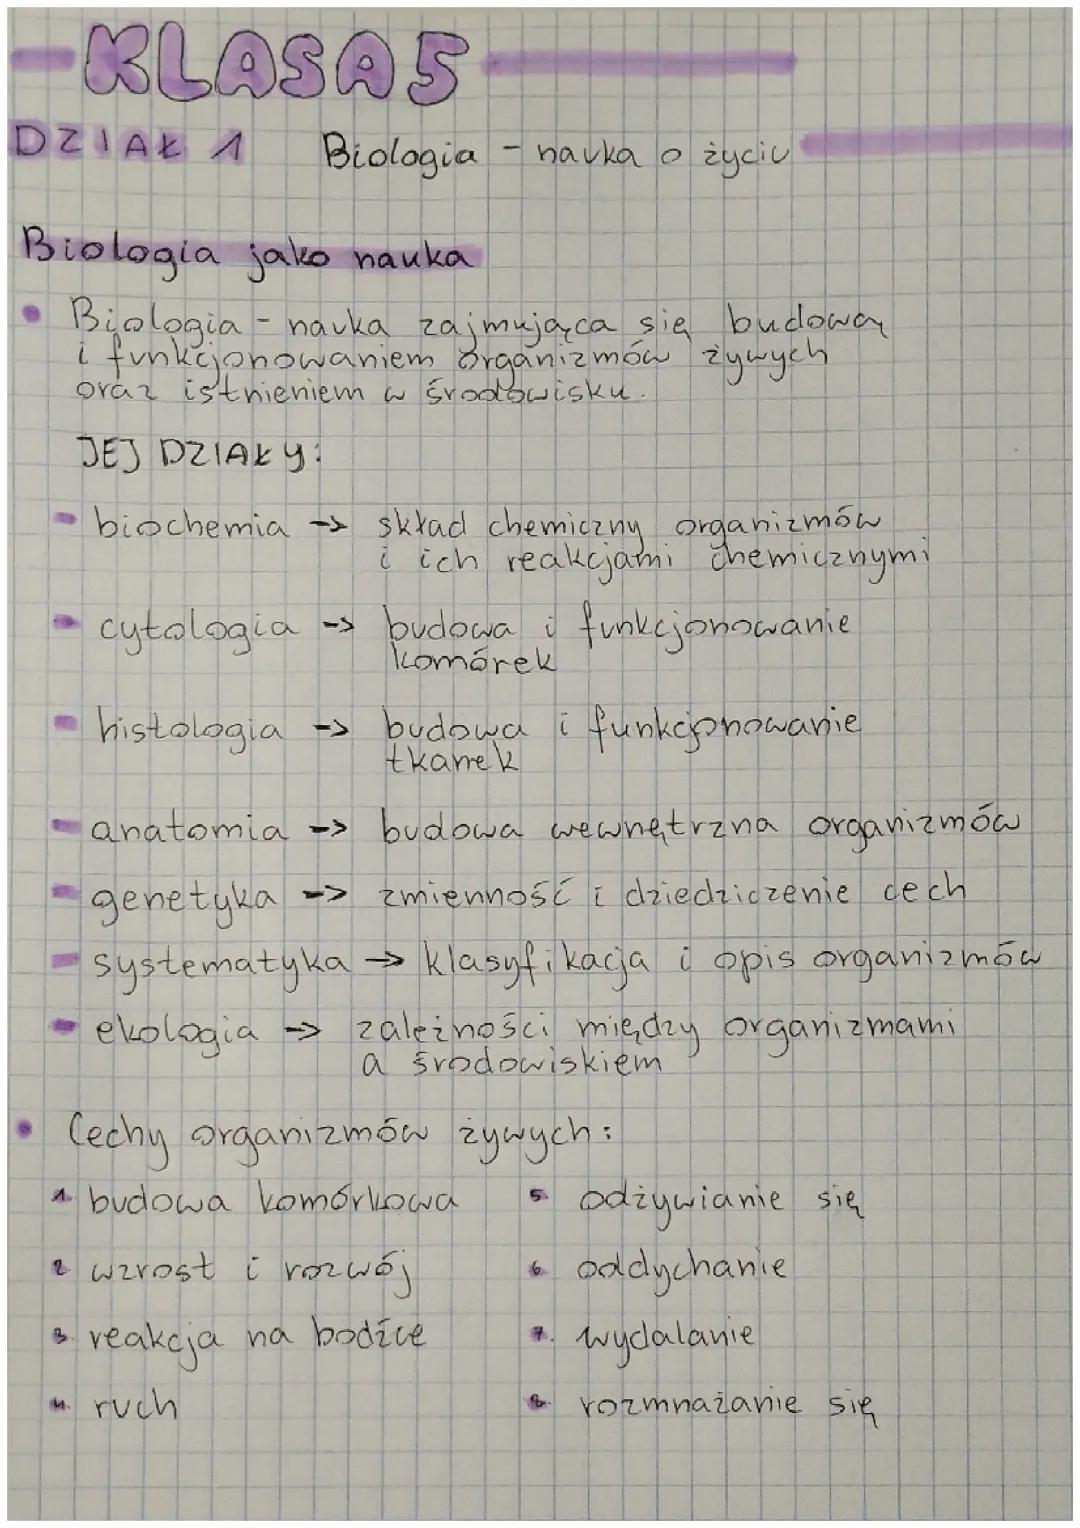 KLASA 5
DZIAŁ 1 Biologia - nauka o życiu
Biologia jako nauka
• Biologia - nauka zajmująca się budową
i funkcjonowaniem organizmów żywych
oraz istnieniem w środowisku.
JEJ DZIAŁY:
- biochemia -> skład chemiczny organizmów
i ich reakcjami chemicznymi
- cytologia -> budowa i funkcjonowanie
komórek
- histologia -> budowa i funkcjonowanie
tkanek
- anatomia -> budowa wewnętrzna organizmów
- genetyka -> zmienność i dziedziczenie cech
- systematyka -> klasyfikacja i opis organizmów
- ekologia -> zależności między organizmami
a środowiskiem
• Cechy organizmów żywych:
1. budowa komórkowa
2. wzrost i rozwój
3. reakcja na bodźce
4. ruch
5. odżywianie się
6. oddychanie
7. wydalanie
8. rozmnażanie się